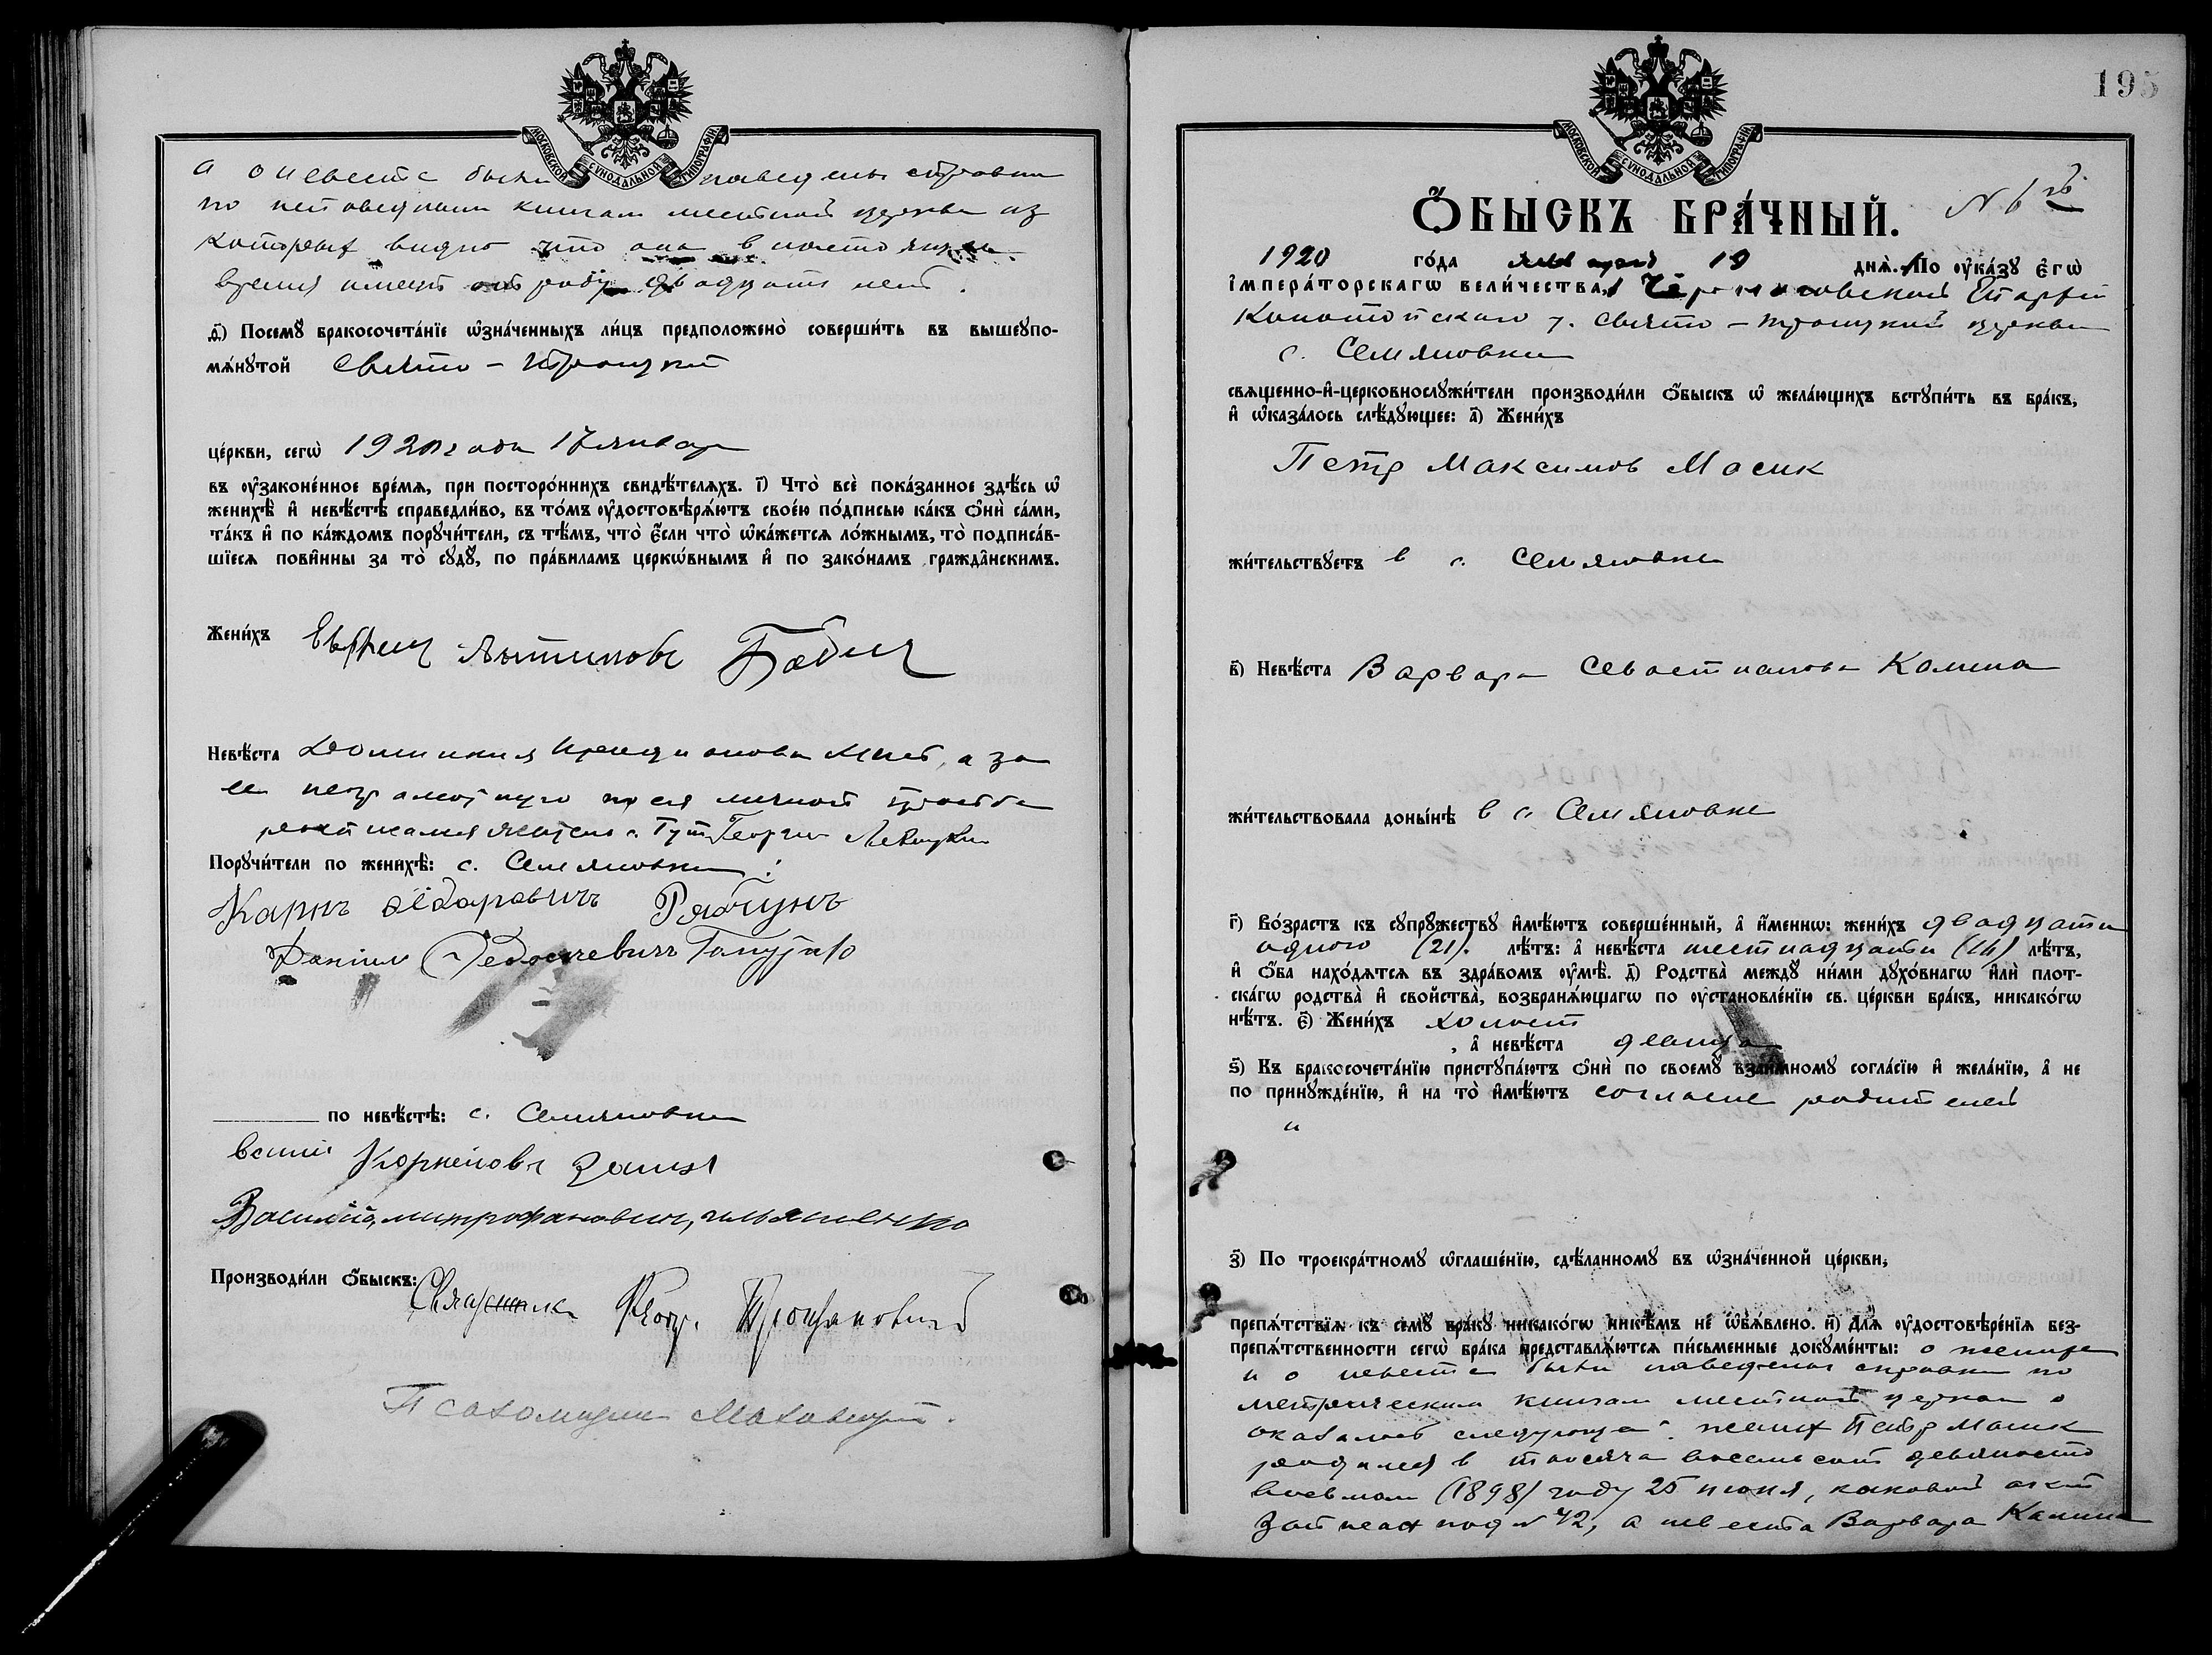 МОСКОВСКОЙ СѴНОДАЛЬНОЙ ТИПОГРАФІИ
а о невесте были наведены справки
по исповедным книгам местной церкви из
которых видно что она в настоящее
время имеет от роду двадцать лет.
д҃і) Посемꙋ̀ бракосочета́нїе ѡ҆зна́ченныхъ ли́цъ предположено̀ соверши́ть въ вышеꙋпо-
мѧ́нꙋтой Свято-Троицкой
це́ркви, сегѡ̀ 1920 года 17 января
въ ᲂу҆законе́нное вре́мѧ, при посторо́ннихъ свидѣ́телѧхъ. і҃) Что̀ всѐ пока́занное здѣ́сь ѡ҆
женихѣ̀ и҆ невѣ́стѣ справедли́во, въ то́мъ ᲂу҆достовѣрѧ́ютъ свое́ю по́дписью ка́къ ѻ҆нѝ са́ми,
та́къ и҆ по ка́ждомъ порꙋчи́тели, съ тѣ́мъ, что̀ є҆́сли что̀ ѡ҆ка́жетсѧ ло́жнымъ, то̀ подписа́в-
шїесѧ пови́нны за то̀ сꙋдꙋ̀, по пра́виламъ церко́внымъ и҆ по зако́намъ гражда́нскимъ.
Жени́хъ
Невѣ́ста а за
ее неграмотную по ея личной просьбе
расписался Георгий Левицкий
Порꙋчи́тели по женихѣ̀: с. Семяновки:
Карпъ Ѳедоровичъ Рябчунъ
Даніил Федосеевичъ
по невѣ́стѣ: с. Семяновки
Корнеіовъ
Василій, митрофановичъ,
Производи́ли ѻ҆́быскъ: Священник Троцановский
Псаломщик Маковецкий.
195
МОСКОВСКОЙ СѴНОДАЛЬНОЙ ТИПОГРАФІИ
ѻ҆́БЫСКЪ БРА́ЧНЫЙ. № 6
1920 го́да января 19 днѧ̀. По ᲂу҆ка́зꙋ є҆гѡ̀
і҆мпера́торскагѡ вели́чества, Черниговской Епархии
Конотопского у. Свято-Троицкой церкви
с. Семяновки
свѧще́нно-и҆-церковнослꙋжи́тели производи́ли ѻ҆́быскъ ѡ҆ жела́ющихъ встꙋпи́ть въ бра́къ,
и҆ ѡ҆каза́лось слѣ́дꙋющее: а҃) Жени́хъ
Петр Максимов Масик
жи́тельствꙋетъ в с. Семяновке
в҃) Невѣ́ста Варвара Севастианова Калина
жи́тельствовала доны́нѣ в с. Семяновке
г҃) Во́зрастъ къ сꙋпрꙋ́жествꙋ и҆мѣ́ютъ соверше́нный, а҆ и҆́меннѡ: жени́хъ двадцати
одного (21). лѣ́тъ: а҆ невѣ́ста шестнадцати (16) лѣ́тъ,
и҆ ѻ҆́ба нахо́дѧтсѧ въ здра́вомъ ᲂу҆мѣ̀. д҃) Родства̀ междꙋ̀ ни́ми дꙋхо́внагѡ и҆лѝ плот-
ска́гѡ родства̀ и҆ свойства̀, возбранѧ́ющагѡ по ᲂу҆становле́нїю св. це́ркви бра́къ, никако́гѡ
нѣ́тъ. є҃) Жени́хъ холост
, а҆ невѣ́ста девица
ѕ҃) Къ бракосочета́нїю пристꙋпа́ютъ ѻ҆нѝ по своемꙋ̀ взаи́мномꙋ согла́сїю и҆ жела́нїю, а҆ не
по принꙋжде́нїю, и҆ на то̀ и҆мѣ́ютъ согласие родителей
з҃) По троекра́тномꙋ ѡ҆глаше́нїю, сдѣ́ланномꙋ въ ѡ҆зна́ченной це́ркви,
препѧ́тствїѧ къ семꙋ̀ бра́кꙋ никако́гѡ никѣ́мъ не ѡ҆б̾ѧ́влено. и҃) Длѧ̀ ᲂу҆достовѣре́нїѧ без-
препѧ́тственности сегѡ̀ бра́ка представлѧ́ютсѧ пи́сьменные докꙋме́нты: о женихе
и о невесте были наведены справки по
метрическим книгам местной церкви и
оказалось следующее: жених Петр Масик
родился в тысяча восемьсот девяносто
восьмом (1898) году 25 июня, каковой акт
записан под № 42, а невеста Варвара Калина